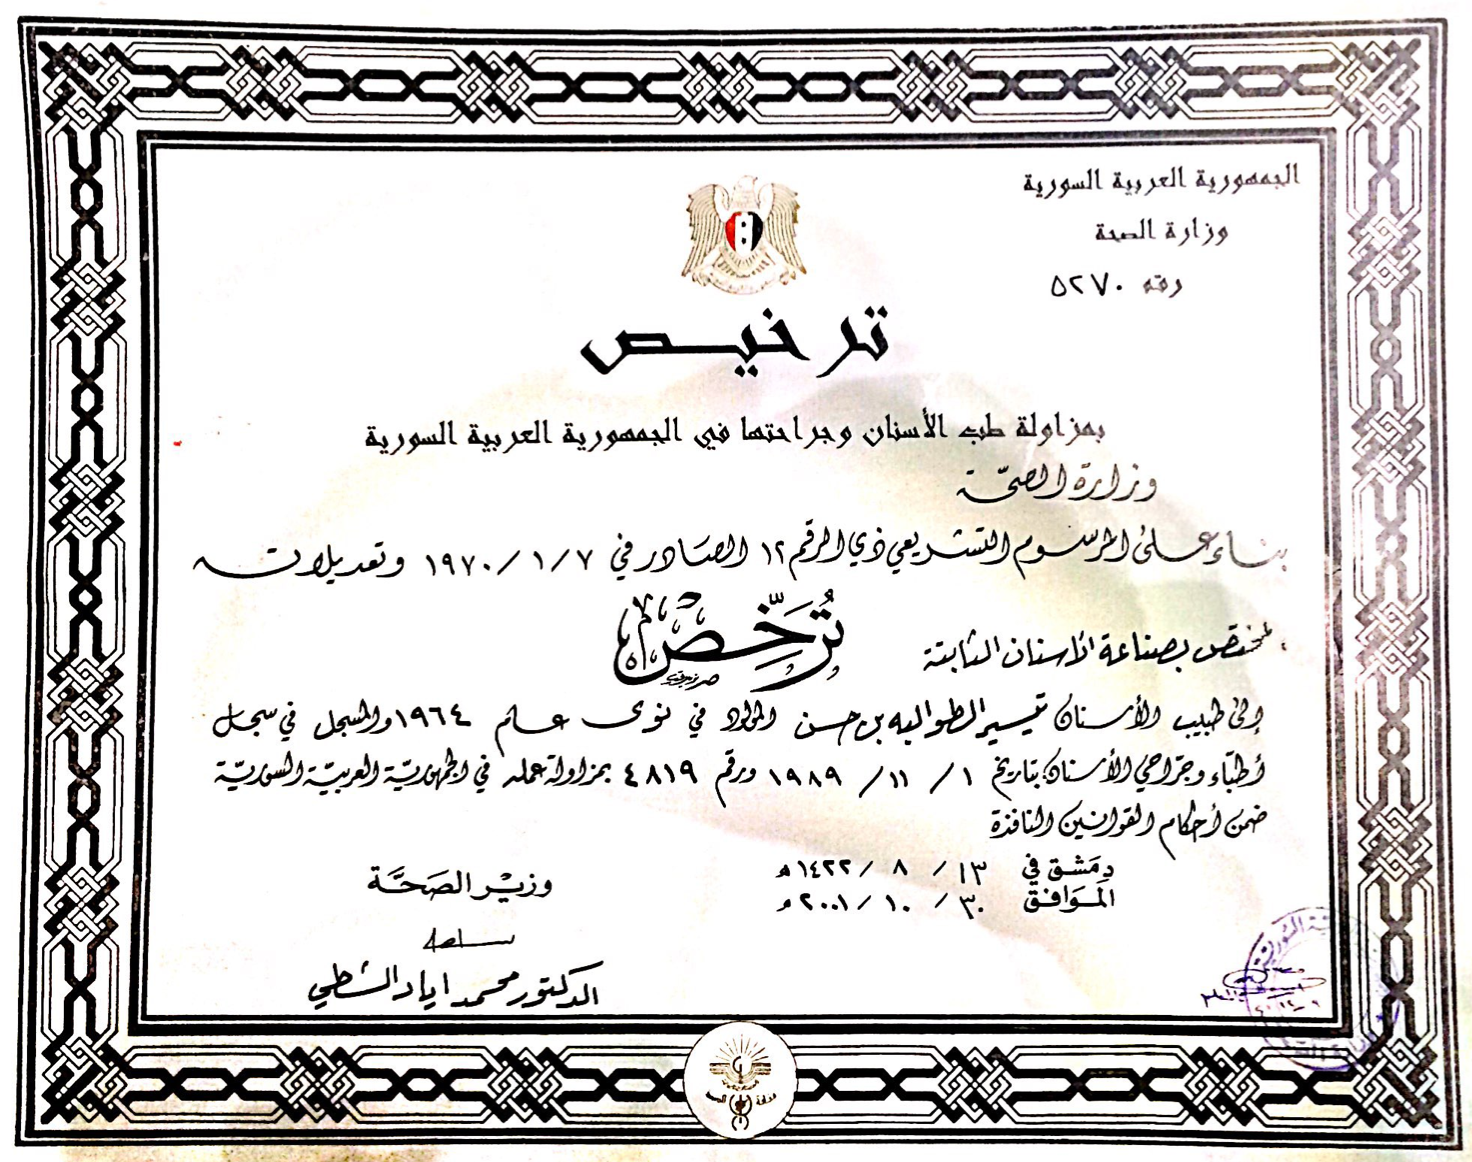 الجمهورية العربية السورية
وزارة الصحة
رقم ٥٢٧٠
ترخيص
بمزاولة طب الأسنان وجراحتها في الجمهورية العربية السورية
وزارة الصحّة
بناء على المرسوم التشريعي ذي الرقم ١٢ الصادر في ٧ / ١ / ١٩٧٠ وتعديلاته
تُرَخِّصْ
مختص بصناعة الأسنان الثابتة
إلى طبيب الأسنان تيسير الطوالبه بن حسن المولود في نوى عام ١٩٦٤ والمسجل في سجل
أطبّاء وجرّاحي الأسنان بتاريخ ١ / ١١ / ١٩٨٩ ورقم ٤٨١٩ بمزاولة عمله في الجمهوريّة العربيّة السوريّة
ضمن أحكام القوانين النافذة
دمَشق في ١٣ / ٨ / ١٤٢٢ هـ
المَوافق ٣٠ / ١٠ / ٢٠٠١ م
وزيْر الصَحَّة
الدكتور محمد اياد الشطي